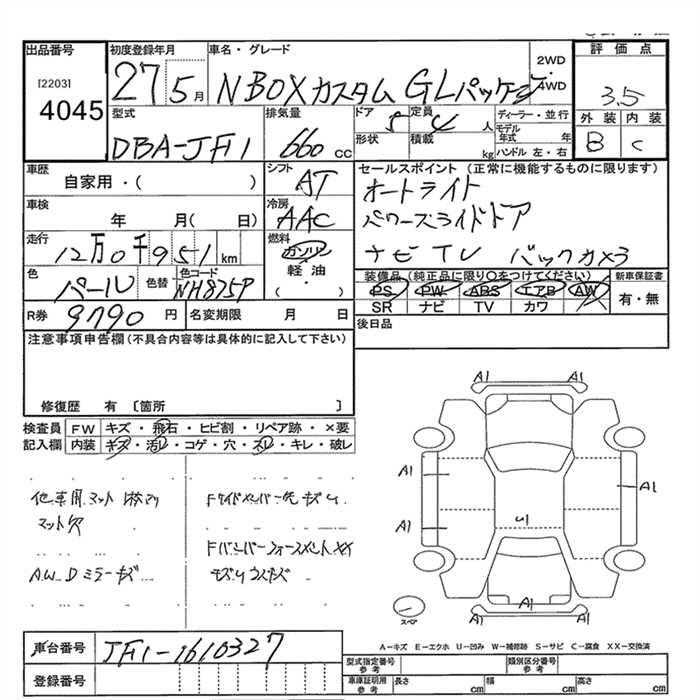 出品番号 初度登録年月 車名・グレード 2WD 4WD 評価点
[2203] 4045 27 5月 NBOXカスタム GLパッケージ 3.5
型式 DBA-JF1 排気量 660 cc ドア 5 形状 定員 4 人 積載 kg
ディーラー・並行 モデル年式 年 ハンドル 左・右
外装 内装
B C
車歴 自家用・( ) シフト AT
セールスポイント (正常に機能するものに限ります)
オートライト
パワースライドドア
ナビ TV バックカメラ
車検 年 月( 日) 冷房 AAC
走行 12万0千951 km 燃料 ガソリン 軽油 ・( )
色 パール 色替 色コード NH875P
装備品 (純正品に限り○をつけてください) 新車保証書
PS PW ABS エアB AW 有・無
SR ナビ TV カワ
R券 9790 円 名変期限 月 日
後日品
注意事項申告欄 (不具合内容等は具体的に記入して下さい)
修復歴 有 〔箇所 〕
検査員 FW キズ・飛石・ヒビ割・リペア跡・×要
記入欄 内装 キズ・汚レ・コゲ・穴・スレ・キレ・破レ
他車用マット
マット欠
A.W Dミラーキズ
A1 A1
A1 A1
A1
U1
A1 A1
A1
スペア
A-キズ E-エクボ U-凹み W-補修跡 S-サビ C-腐食 XX-交換済
車台番号 JF1-1610327
登録番号
型式指定番号 参考 類別区分番号 参考
車庫証明用 参考 長さ cm 幅 cm 高さ cm